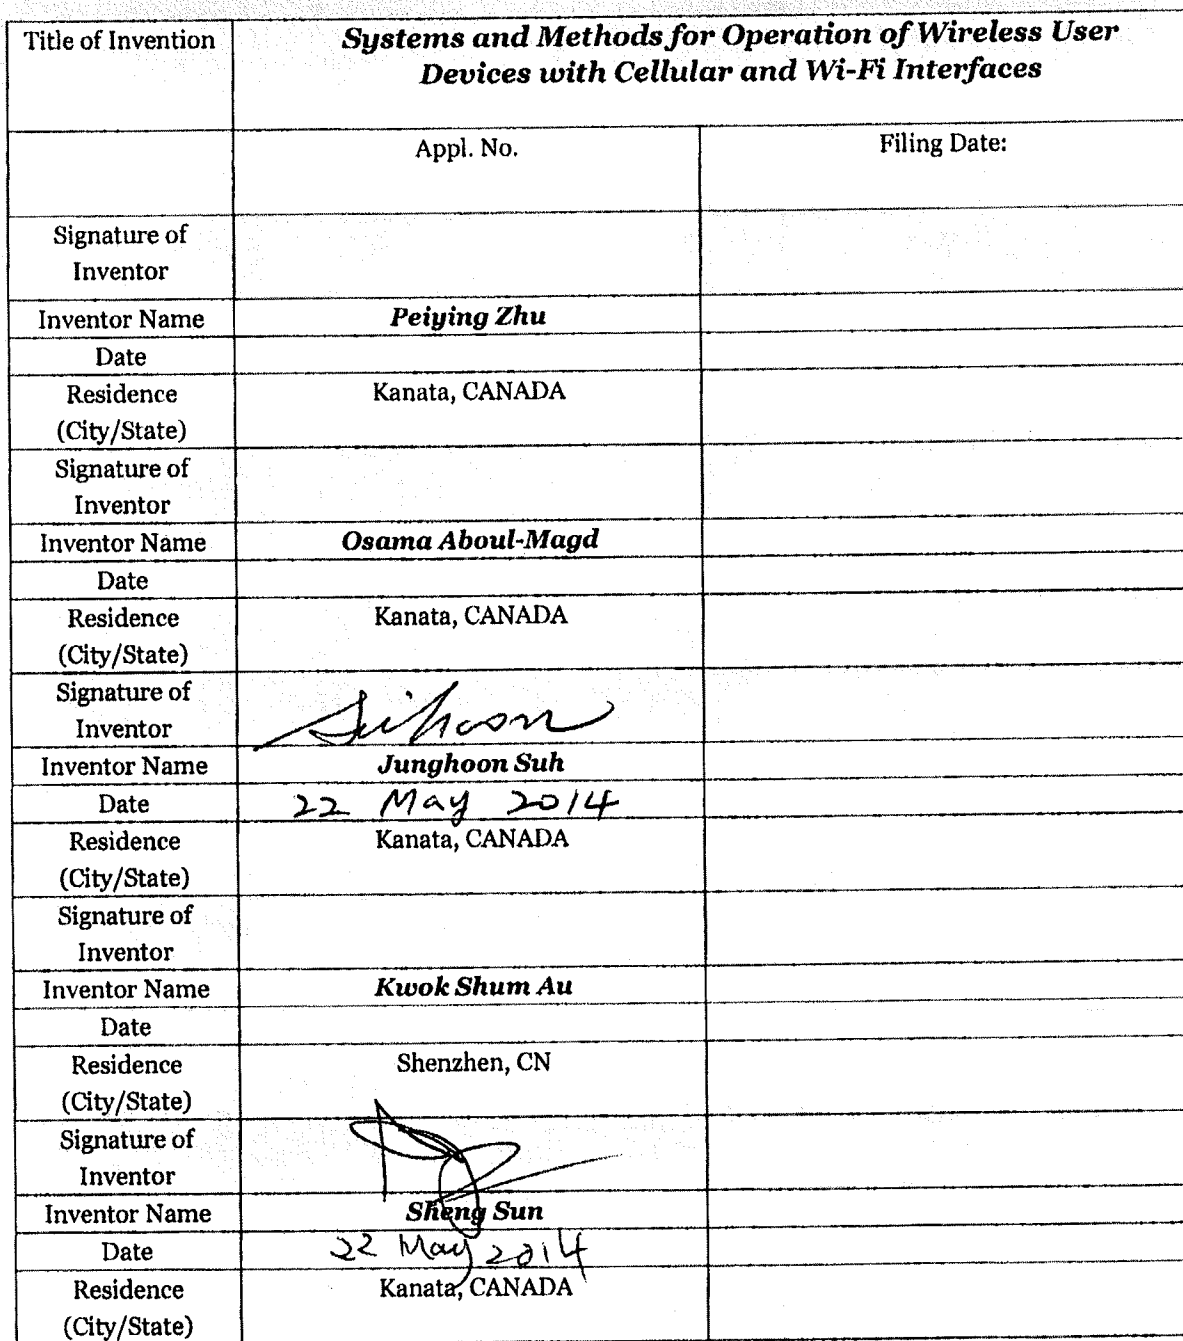 Title of Invention
Systems and Methods for Operation of Wireless User
Devices with Cellular and Wi-Fi Interfaces
Appl. No.
Filing Date:
Signature of
Inventor
Inventor Name
Peiying Zhu
Date
Residence
(City/State)
Kanata, CANADA
Signature of
Inventor
Inventor Name
Osama Aboul-Magd
Date
Residence
(City/State)
Kanata, CANADA
Signature of
Inventor
Inventor Name
Junghoon Suh
Date
22 May 2014
Residence
(City/State)
Kanata, CANADA
Signature of
Inventor
Inventor Name
Kwok Shum Au
Date
Residence
(City/State)
Shenzhen, CN
Signature of
Inventor
Inventor Name
Sheng Sun
Date
22 May 2014
Residence
(City/State)
Kanata, CANADA